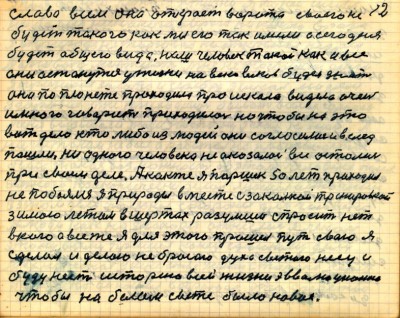 12
слава всем она откроет ворота своего не
будет такого как мы его так имели а сегодня
будет общего вида, наш человек такой как и все
они останутся у жизни на веки веков будем знать
они по планете проходили про искала видела очем
и много говорит приходилось но чтобы на это
вот дело кто либо из людей они согласились и вслед
пошли, ни одного человека не оказалось все остались
при своем деле, А как те я паршек 50 лет природы
не побоялся я природы вместе с закалкой тренировкой
зимою летом в шортах разумиши спросит нет
вкого а все же я для этого прошел путь свого я
сделал и делаю не бросаю духа святого несу и
буду нести историю всей жизни я ввел
чтобы на белом свете было новое.